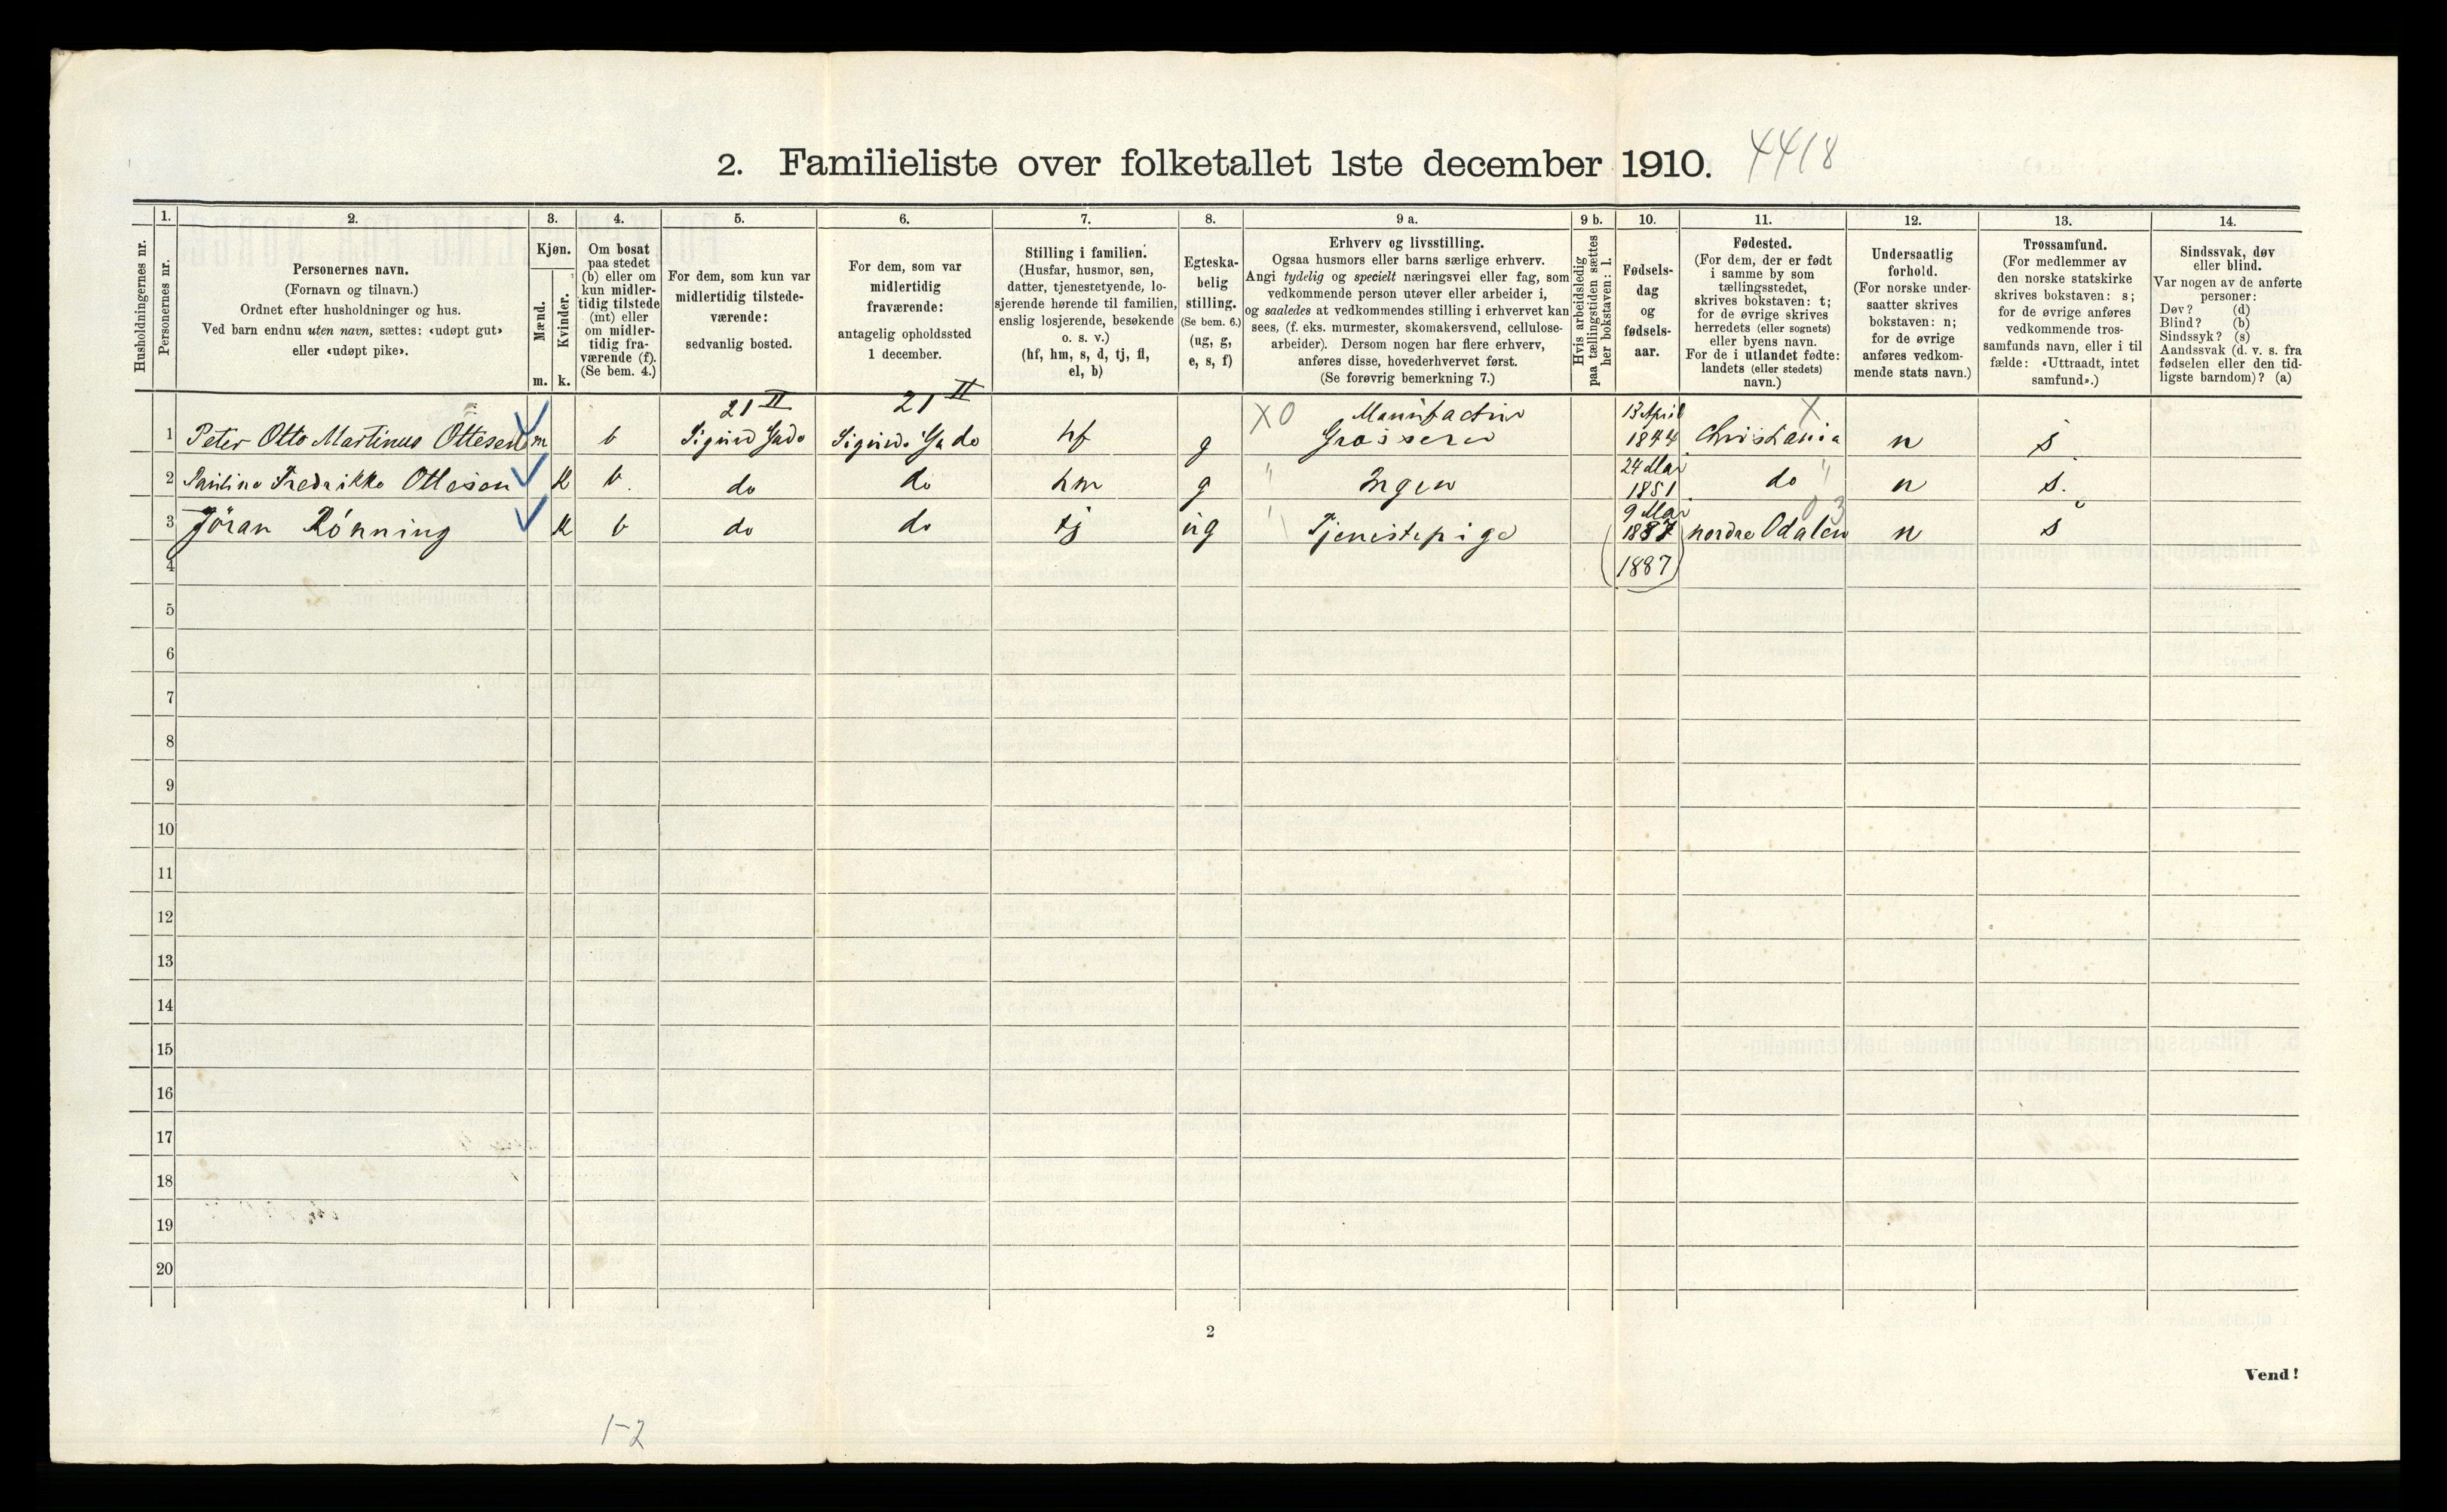 2. Familieliste over folketallet 1ste december 1910. 4418
Husholdningernes nr.
1.
Personernes nr.
2.
Personernes navn.
(Fornavn og tilnavn.)
Ordnet efter husholdninger og hus.
Ved barn endnu uten navn, sættes: «udøpt gut»
eller «udøpt pike».
3.
Kjøn.
Mænd.
m.
Kvinder.
k.
4.
Om bosat
paa stedet
(b) eller om
kun midler-
tidig tilstede
(mt) eller
om midler-
tidig fra-
værende (f).
(Se bem. 4.)
5.
For dem, som kun var
midlertidig tilstede-
værende:
sedvanlig bosted.
6.
For dem, som var
midlertidig
fraværende:
antagelig opholdssted
1 december.
7.
Stilling i familien.
(Husfar, husmor, søn,
datter, tjenestetyende, lo-
sjerende hørende til familien,
enslig losjerende, besøkende
o. s. v.)
(hf, hm, s, d, tj, fl,
el, b)
8.
Egteska-
belig
stilling.
(Se bem. 6.)
(ug, g,
e, s, f)
9 a.
Erhverv og livsstilling.
Ogsaa husmors eller barns særlige erhverv.
Angi tydelig og specielt næringsvei eller fag, som
vedkommende person utøver eller arbeider i,
og saaledes at vedkommendes stilling i erhvervet kan
sees, (f. eks. murmester, skomakersvend, cellulose-
arbeider). Dersom nogen har flere erhverv,
anføres disse, hovederhvervet først.
(Se forøvrig bemerkning 7.)
9 b.
Hvis arbeidsledig
paa tællingstiden sættes
her bokstaven: l.
10.
Fødsels-
dag
og
fødsels-
aar.
11.
Fødested.
(For dem, der er født
i samme by som
tællingsstedet,
skrives bokstaven: t;
for de øvrige skrives
herredets (eller sognets)
eller byens navn.
For de i utlandet fødte:
landets (eller stedets)
navn.)
12.
Undersaatlig
forhold.
(For norske under-
saatter skrives
bokstaven: n;
for de øvrige
anføres vedkom-
mende stats navn.)
13.
Trossamfund.
(For medlemmer av
den norske statskirke
skrives bokstaven: s;
for de øvrige anføres
vedkommende tros-
samfunds navn, eller i til
fælde: «Uttraadt, intet
samfund».)
14.
Sindssvak, døv
eller blind.
Var nogen av de anførte
personer:
Døv? (d)
Blind? (b)
Sindssyk? (s)
Aandssvak (d. v. s. fra
fødselen eller den tid-
ligste barndom)? (a)
21 II 21 II X0 Manufactur 13 April X
1 Peter Otto Martinus Ottesen m b Sigurds Gade Sigurds Gade hf g Grosserer 1844 Christiania n s.
24 Mar
2 Pauline Fredrikke Ottesen K b. do do hm g " Ingen 1851 do " n s.
9 Mai 03
3 Jöran Rönning K b do do tj ug " Tjenestepige 1887 nordre Odalen n s
4 (1887)
5
6
7
8
9
10
11
12
13
14
15
16
17
18
19
20
2
Vend!
1-2